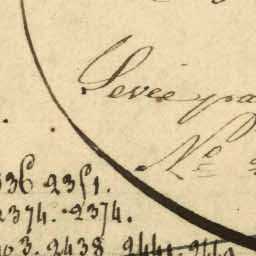 Levée pa
Ne
336 2351.
2374. 2374.
3. 2438 2441.